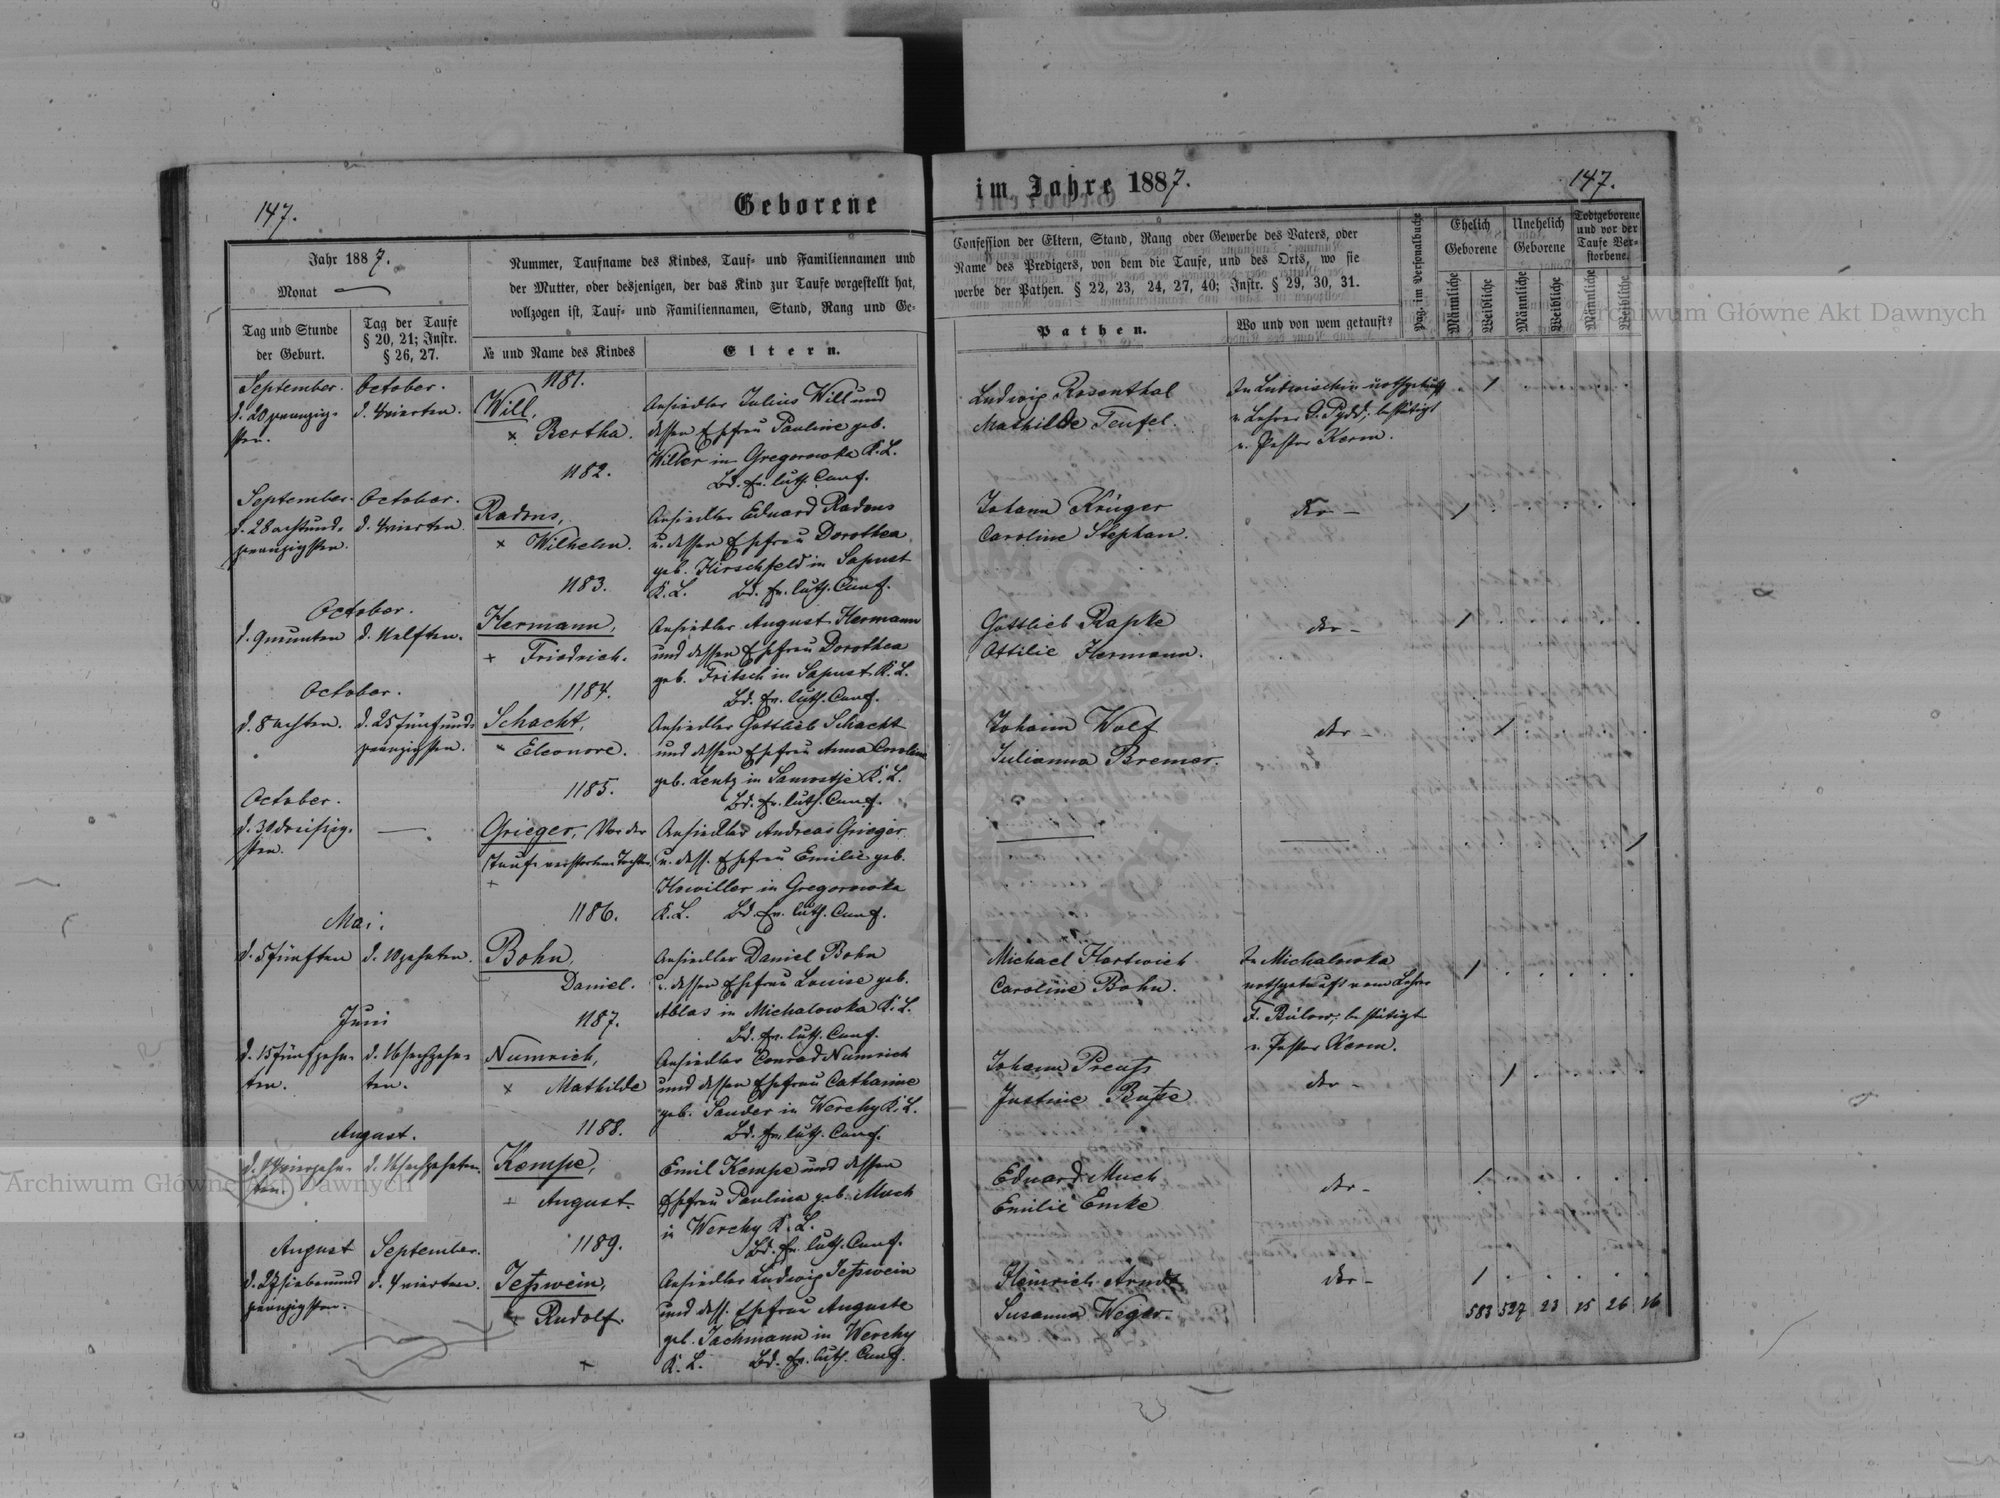 147.
Geborene
im Jahre 1887.
147.
Jahr 1887.
Monat
Tag und Stunde
der Geburt.
Tag der Taufe
§ 20, 21; Instr.
§ 26, 27.
Nummer, Taufname des Kindes, Tauf- und Familiennamen und
der Mutter, oder desjenigen, der das Kind zur Taufe vorgestellt hat,
vollzogen ist, Tauf- und Familiennamen, Stand, Rang und Ge-
№ und Name des Kindes
Eltern.
Confession der Eltern, Stand, Rang oder Gewerbe des Vaters, oder
Name des Predigers, von dem die Taufe, und des Orts, wo sie
werbe der Pathen. § 22, 23, 24, 27, 40; Instr. § 29, 30, 31.
Pathen.
Wo und von wem getauft?
Pag. im Personalbuche
Ehelich
Geborene
Unehelich
Geborene
Todtgeborene
und vor der
Taufe Ver-
storbene.
Männliche
Weibliche
Männliche
Weibliche
Männliche
Weibliche
September.
d. 20 zwanzig-
sten.
October.
d. 4 vierten.
1181.
Will,
× Bertha.
Ansiedler Julius Will und
dessen Ehefrau Pauline geb.
Willer in Gregorowka K. L.
Bd. ev. luth. Conf.
Ludwig Rosenthal
Mathilde Teufel.
In Ludwischin nothgetauft
v. Lehrer G. bestätigt
v. Pastor Kerm.
1
September.
d. 28 achtund-
zwanzigsten.
October.
d. 4 vierten
1182.
Radons,
× Wilhelm.
Ansiedler Eduard Radons
u. dessen Ehefrau Dorothea
geb. Hirschfeld in Sapust
K. L. Bd. ev. luth. Conf.
Johann Krüger
Caroline Stephan.
der –
1
October.
d. 9 neunten
d. 11 elften.
1183.
Hermann,
+ Friedrich.
Ansiedler August Hermann
und dessen Ehefrau Dorothea
geb. Fritsch in Sapust K. L.
Bd. ev. luth. Conf.
Gottlieb Rapke
Ottilie Hermann.
der –
1
October.
d. 8 achten.
d. 25 fünfund-
zwanzigsten.
1184.
Schacht,
× Eleonore.
Ansiedler Gottlieb Schacht
und dessen Ehefrau Anna Caroline
geb. Lentz in Samostje K. L.
Bd. ev. luth. Conf.
Johann Wolf
Julianna Bremer.
der –
1
October.
d. 30 dreißig-
sten.
—
1185.
Grieger, Vor der
Taufe verstorbene Tochter.
+
Ansiedler Andreas Grieger
u. dess. Ehefrau Emilie geb.
Howiller in Gregorowka
K. L. Bd. ev. luth. Conf.
1
Mai.
d. 5 fünften
d. 10 zehnten.
1186.
Bohn,
Daniel.
Ansiedler Daniel Bohn
u. dessen Ehefrau Louise geb.
Ablas in Michalowka K. L.
Bd. ev. luth. Conf.
Michael Hartwich
Caroline Bohn.
In Michalowka
nothgetauft vom Lehrer
F. Bülow; bestätigt
v. Pastor Kerm.
1
Juni
d. 15 fünfzehn-
ten.
d. 16 sechzehn-
ten.
1187.
Numrich,
× Mathilde
Ansiedler Conrad Numrich
und dessen Ehefrau Catharine
geb. Sander in Werchy K. L.
Bd. ev. luth. Conf.
Johann Preuß
Justine Buße
der –
1
August.
d. 14 vierzehn-
ten.
d. 16 sechzehnten.
1188.
Kempe,
+ August.
Emil Kempe und dessen
Ehefrau Paulina geb. Much
in Werchy K. L.
Bd. ev. luth. Conf.
Eduard Much
Emilie Emke
der –
1
August
d. 27 siebenund
zwanzigsten.
September.
d. 4 vierten.
1189.
Jeßwein,
Rudolf.
×
Ansiedler Ludwig Jeßwein
und dess. Ehefrau Auguste
geb. Jachmann in Werchy
K. L. Bd. ev. luth. Conf.
Heinrich Arndt
Susanna Weger.
der –
1
583 527 23 15 26 16
Archiwum Główne Akt Dawnych
Archiwum Główne Akt Dawnych